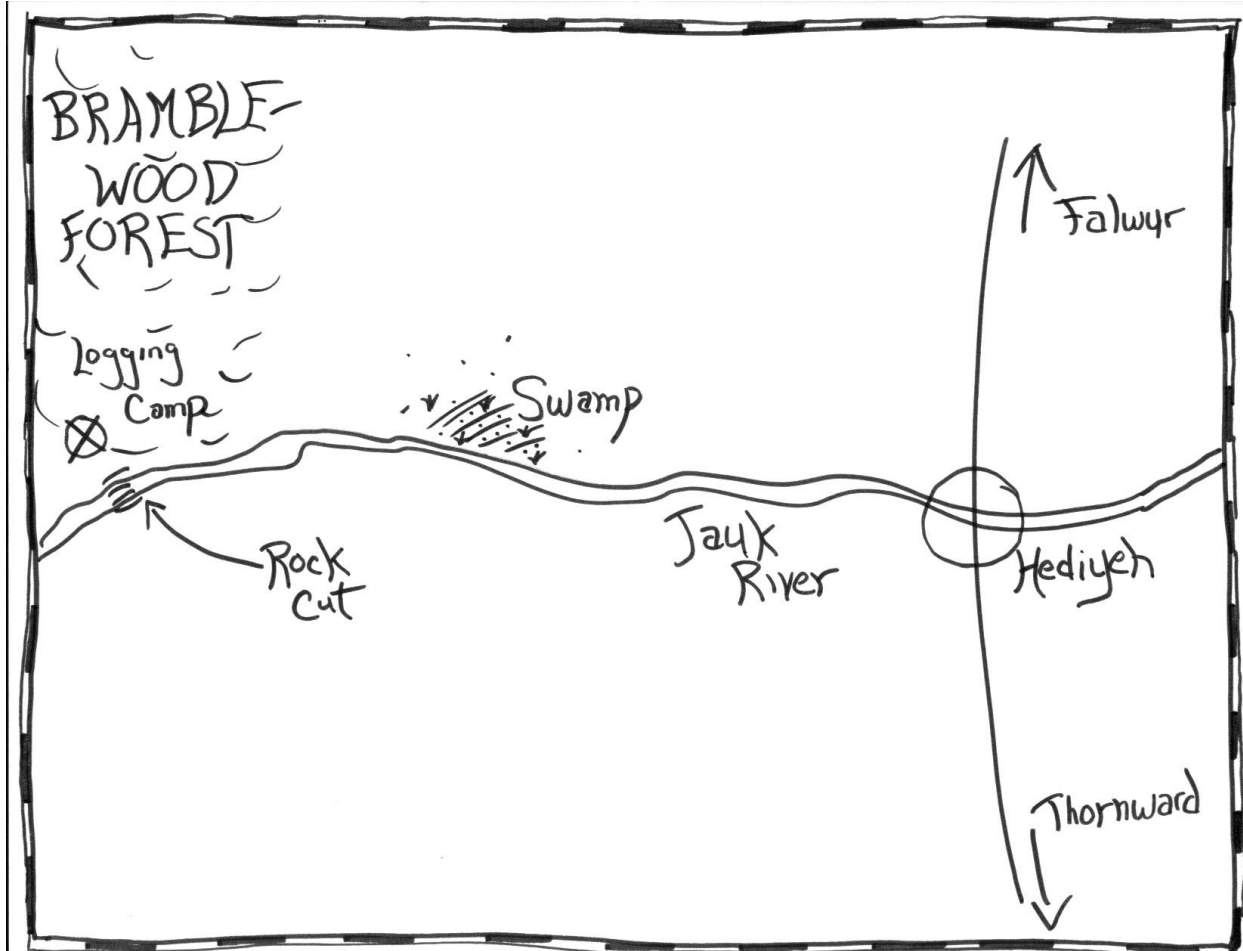 BRAMBLE-
WOOD
FOREST
Falwyr
Logging
Camp
Swamp
Rock
Cut
Jauk
River
Hediyeh
Thornward